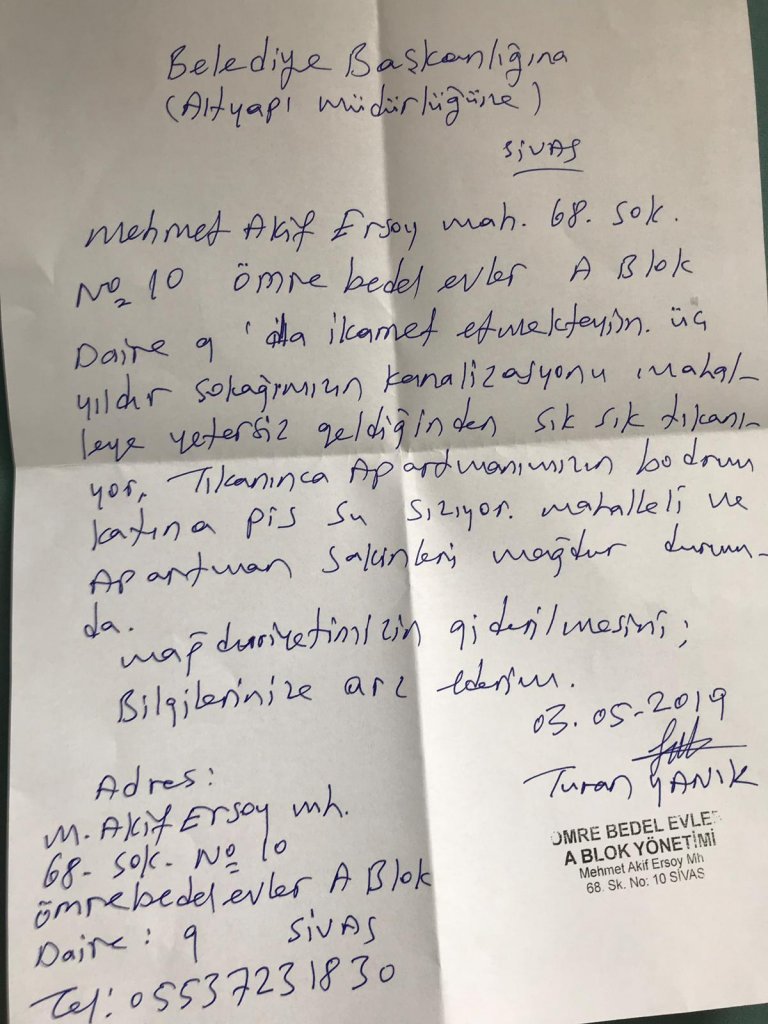 Belediye Başkanlığına
(Altyapı müdürlüğüne)
SİVAS
Mehmet Akif Ersoy mah. 68. sok.
No 10 ömre bedel evler A Blok
Daire 9 'da ikamet etmekteyim. üç
yıldır sokağımızın kanalizasyonu mahal-
leye yetersiz geldiğinden sık sık tıkanı-
yor. Tıkanınca Apartmanımızın bodrum
katına pis su sızıyor. mahalleli ve
Apartman sakinleri mağdur durum-
da.
mağduriyetimizin giderilmesini;
Bilgilerinize arz ederim.
03.05-2019
Turan YANIK
ÖMRE BEDEL EVLER
A BLOK YÖNETİMİ
Mehmet Akif Ersoy Mh
68. Sk. No: 10 SİVAS
Adres:
M. Akif Ersoy mh.
68- sok. No 10
ömrebedel evler A Blok
Daire: 9 SİVAS
Tel: 05537231830